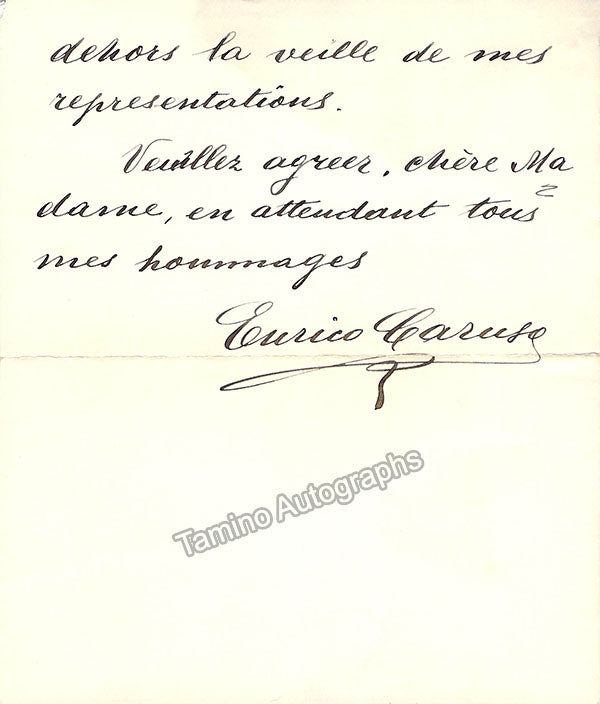 dehors la veille de mes
representations.
Veuillez agreer, chère Ma
dame, en attendant tous
mes hommages
Enrico Caruso
Tamino Autographs